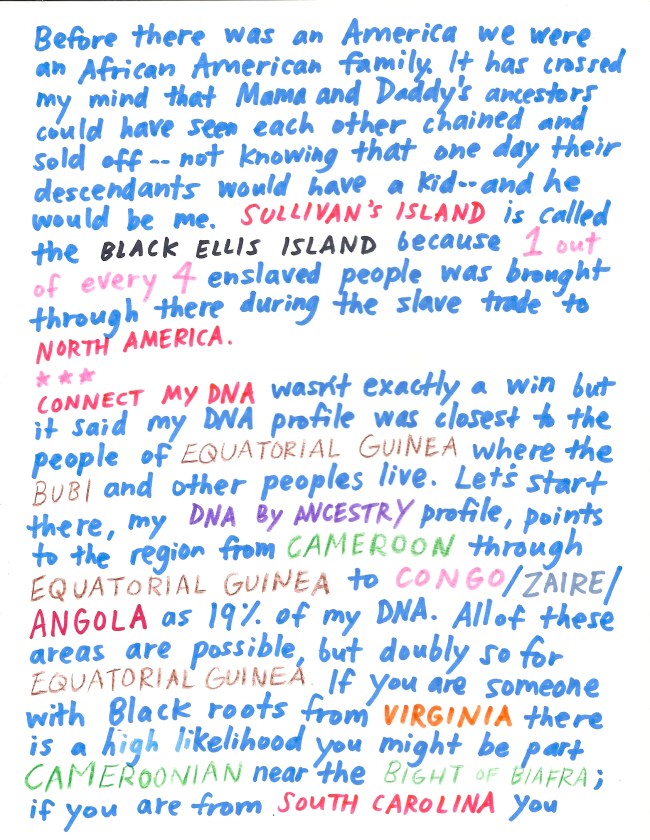 Before there was an America we were
an African American family. It has crossed
my mind that Mama and Daddy's ancestors
could have seen each other chained and
sold off -- not knowing that one day their
descendants would have a kid -- and he
would be me. SULLIVAN'S ISLAND is called
the BLACK ELLIS ISLAND because 1 out
of every 4 enslaved people was brought
through there during the slave trade to
NORTH AMERICA.
***
CONNECT MY DNA wasn't exactly a win but
it said my DNA profile was closest to the
people of EQUATORIAL GUINEA where the
BUBI and other peoples live. Let's start
there, my DNA BY ANCESTRY profile, points
to the region from CAMEROON through
EQUATORIAL GUINEA to CONGO/ZAIRE/
ANGOLA as 19% of my DNA. All of these
areas are possible, but doubly so for
EQUATORIAL GUINEA. If you are someone
with Black roots from VIRGINIA there
is a high likelihood you might be part
CAMEROONIAN near the BIGHT OF BIAFRA;
if you are from SOUTH CAROLINA you